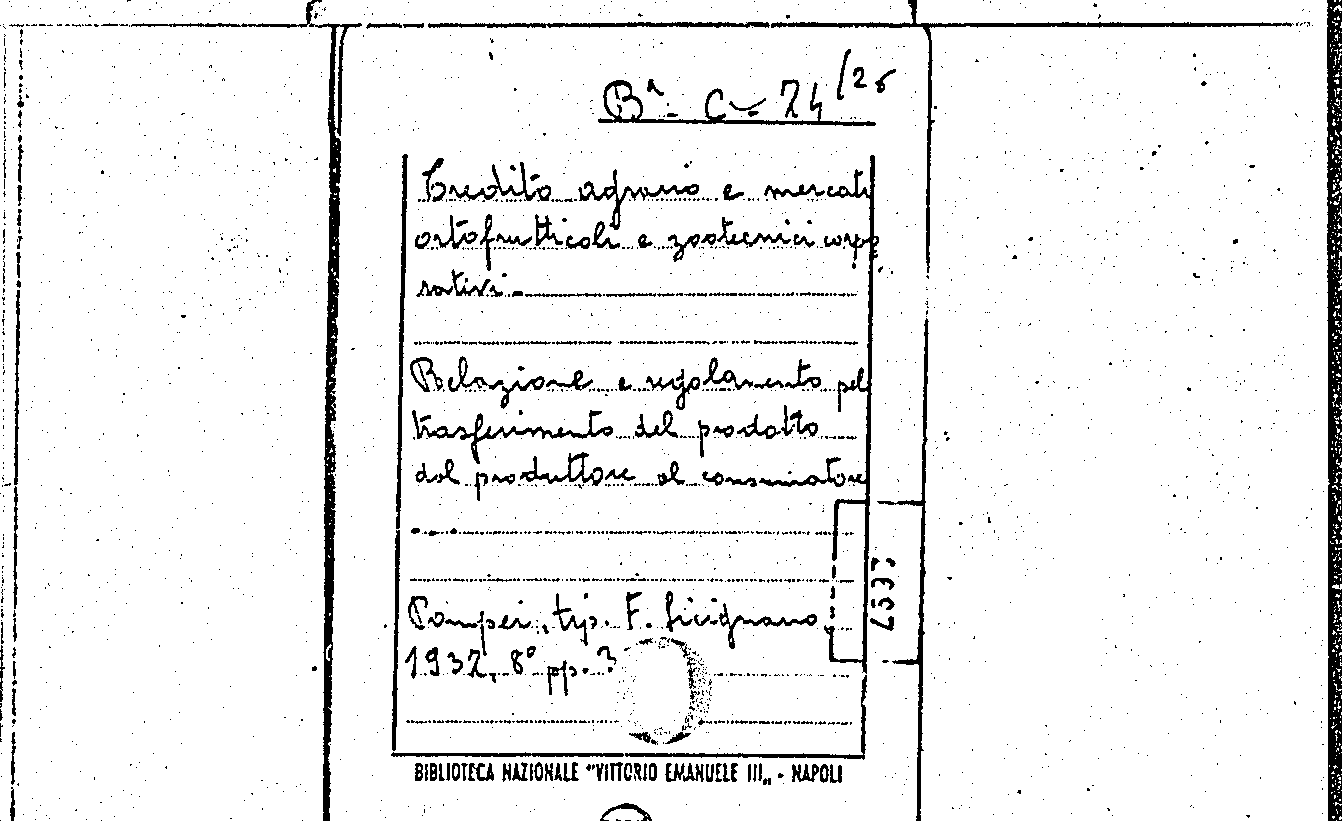 Bª - C - 24/26
Credito agrario e mercati
ortofrutticoli e zootecnici corpo
rativi -
Relazione e regolamento pel
trasferimento del prodotto
dal produttore al consumatore
...
Pompei, tip. F. Sicignano,
1932, 8° pp. 3
BIBLIOTECA NAZIONALE "VITTORIO EMANUELE III„ - NAPOLI